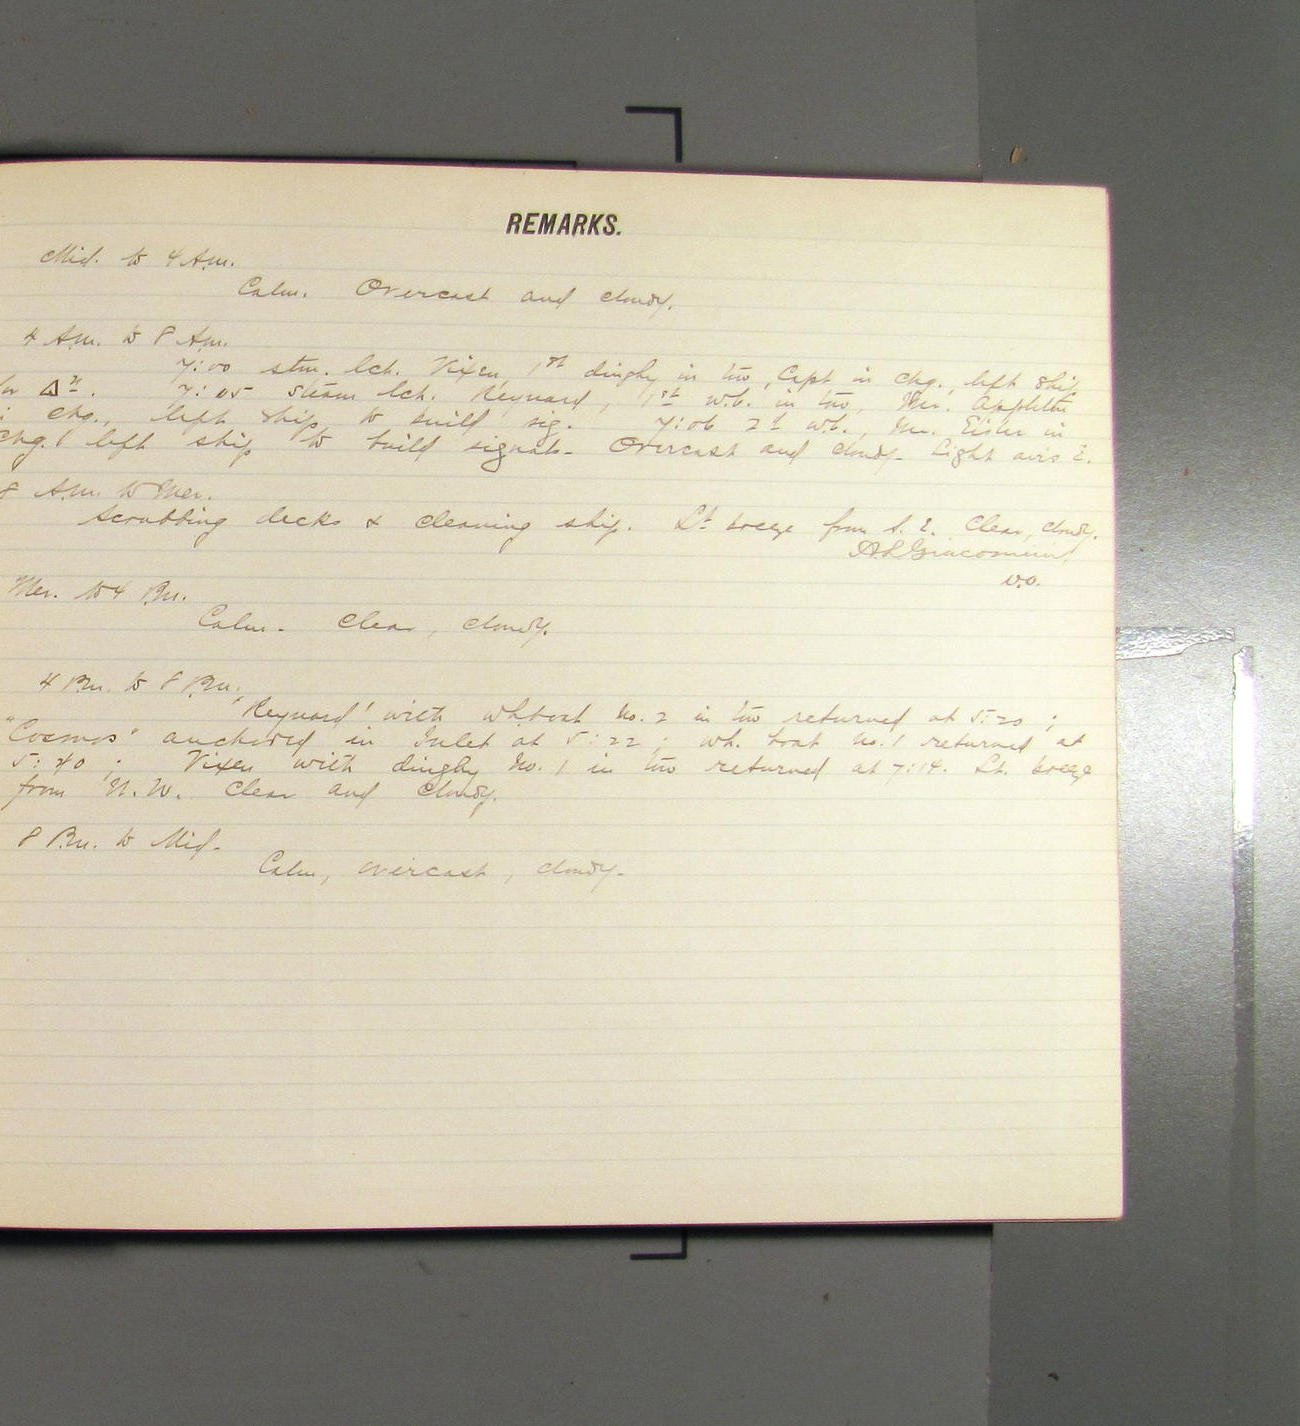 REMARKS.
Mid. to 4 A.m.
Calm. Overcast and cloudy.
4 A.m. to 8 A.m.
7:00 stm. lch. Vixen, 1st dinghy in tow, Capt in chg., left ship
for Δn. 7:05 steam lch. Reynard, 1st w.b. in tow, Mr.
in chg., left ship to build sig. 7:06 2d w.b., Mr. Eisler in
chg. left ship to build signals. Overcast and cloudy. Light airs E.
8 A.m. to Mer.
Scrubbing decks & cleaning ship. Lt breeze from S.E. Clear, cloudy.
A.L. Giacomini,
W.O.
Mer. to 4 P.m.
Calm. Clear, cloudy.
4 P.m. to 8 P.m.
"Reynard" with wh.boat No. 2 in tow returned at 5:20;
"Cosmos" anchored in Inlet at 5:22; wh. boat No. 1 returned at
5:40; Vixen with dinghy No. 1 in tow returned at 7:14. Lt. breeze
from N.W. Clear and cloudy.
8 P.m. to Mid.
Calm, overcast, cloudy.